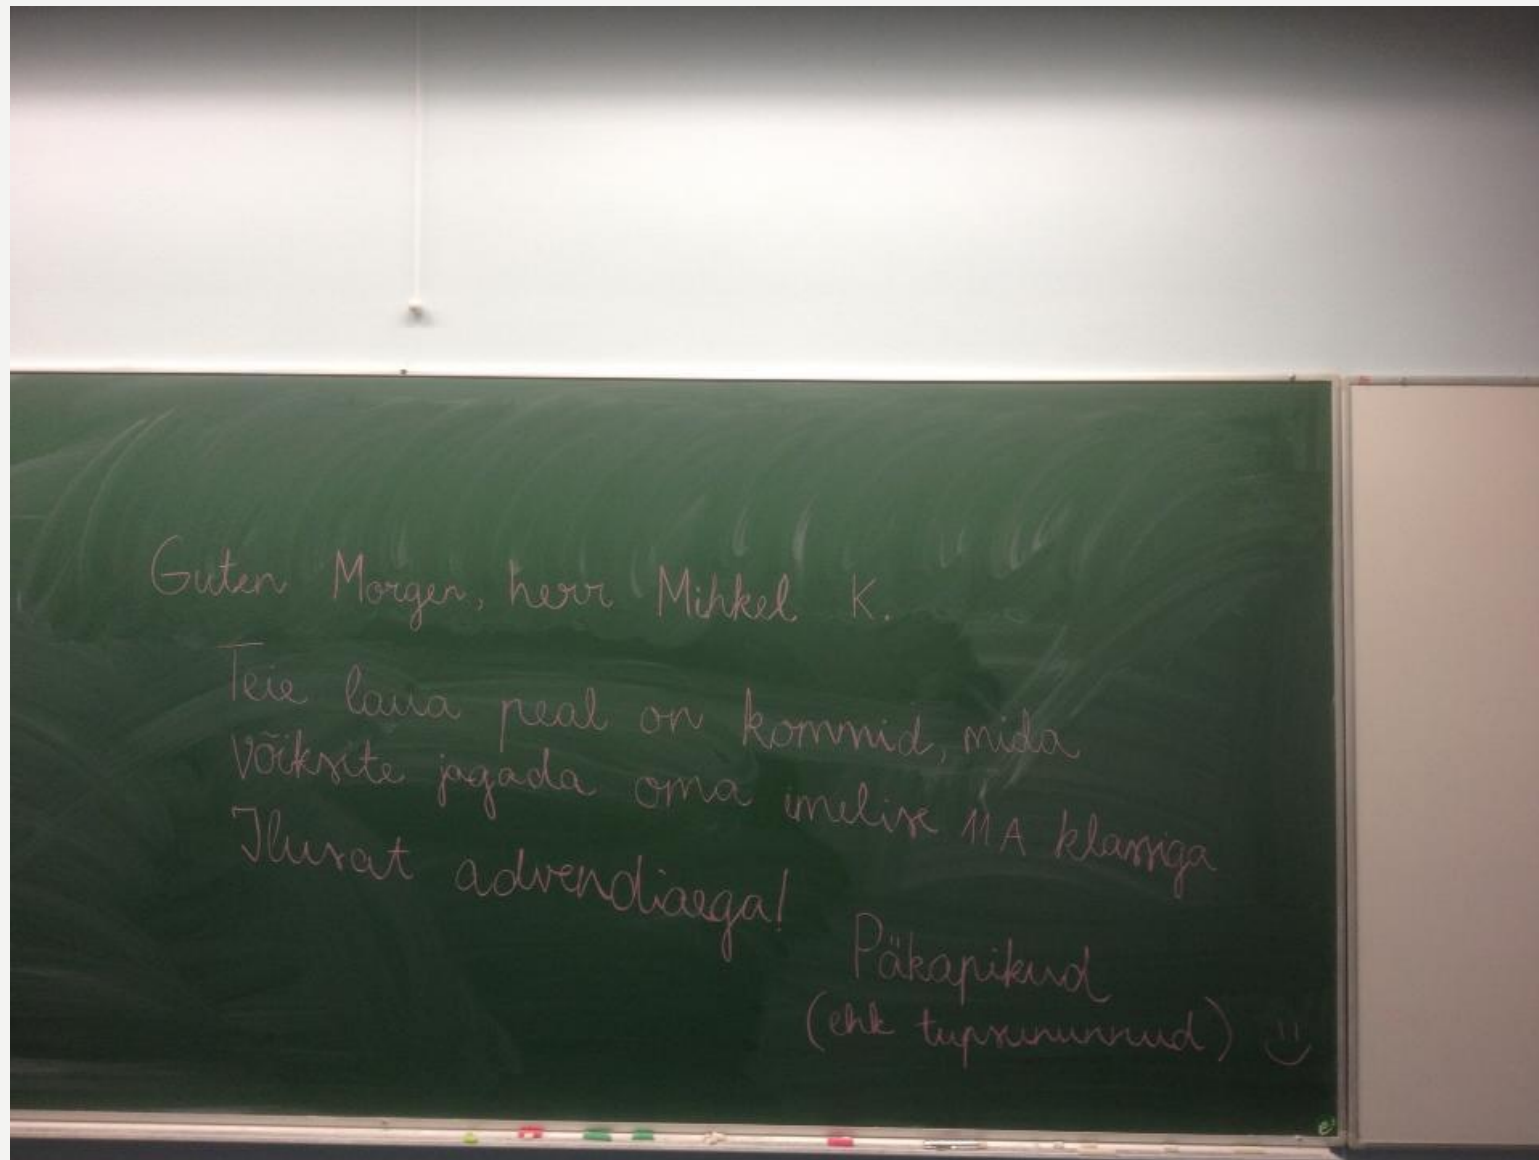 Guten Morgen, herr Mihkel K.
Teie laua peal on kommid, mida
võiksite jagada oma imelise 11A klassiga
Ilusat advendiaega!
Päkapikud
(ehk tupsununnud)